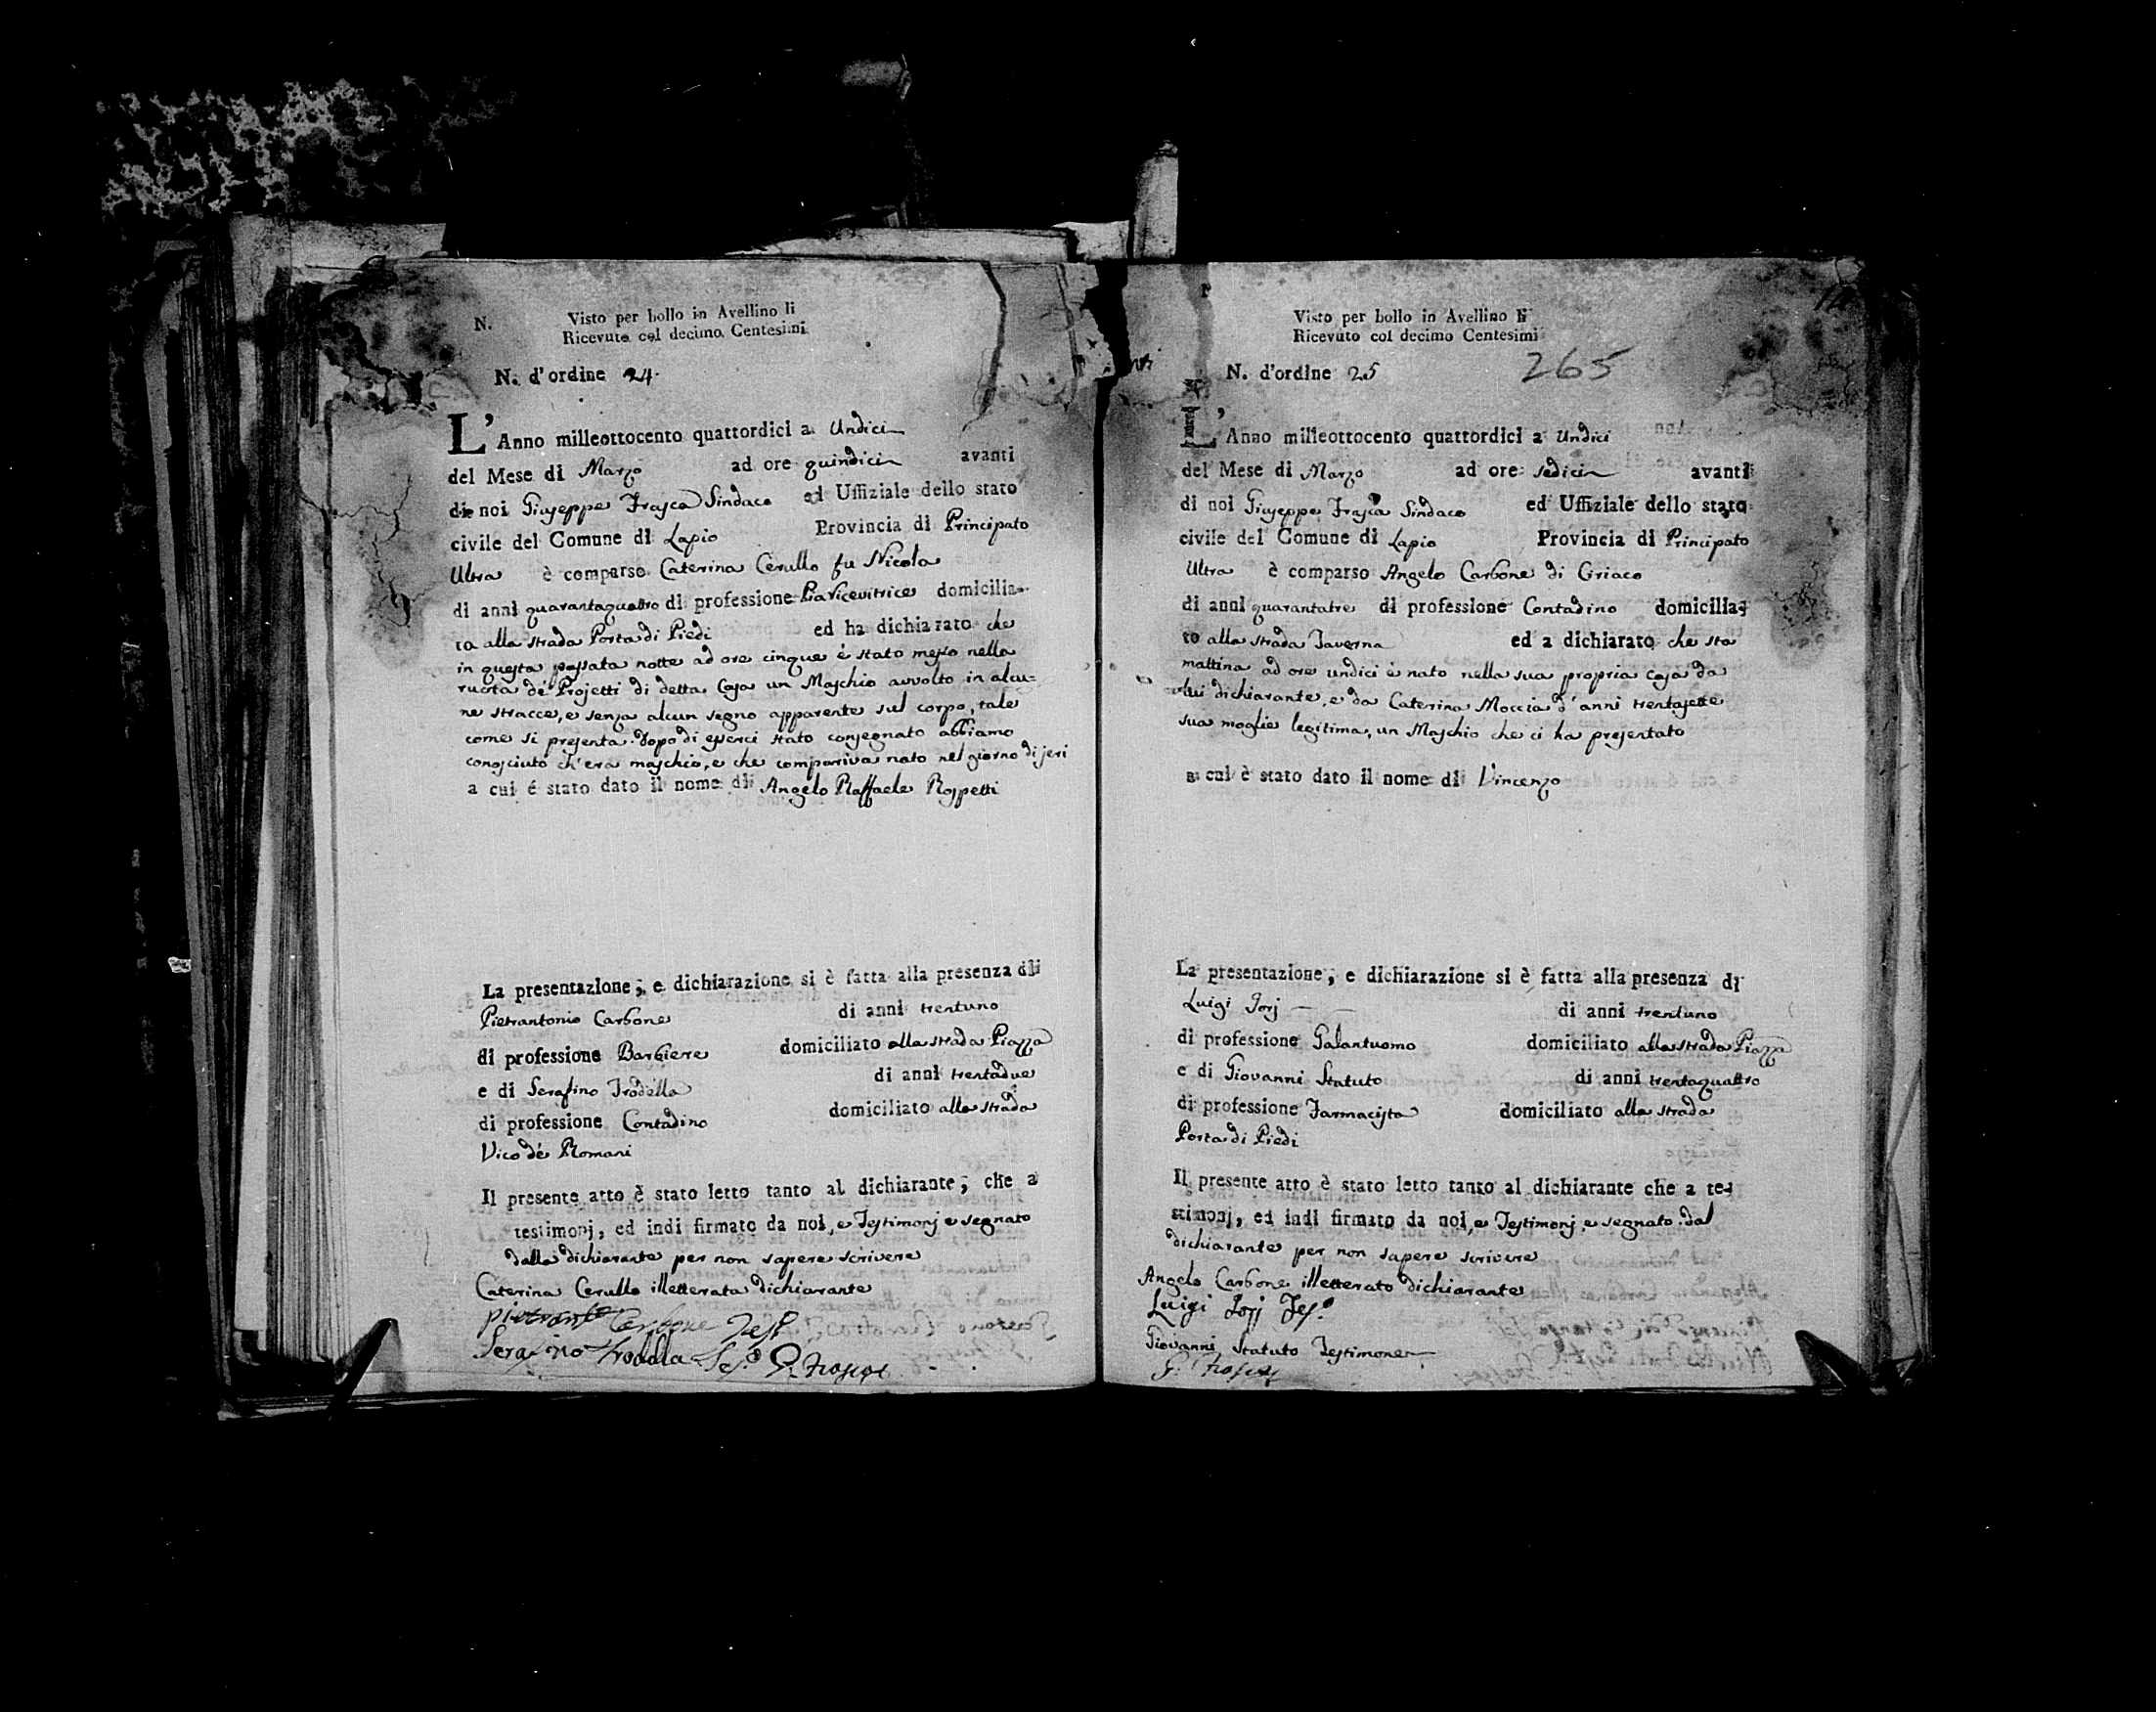 N.
Visto per bollo in Avellino li
Ricevuto col decimo Centesimi
N. d'ordine 24.
L'Anno milleottocento quattordici a Undici
del Mese di Marzo ad ore quindici avanti
di noi Giuseppe Frasca Sindaco ed Uffiziale dello stato
civile del Comune di Lapio Provincia di Principato
Ultra è comparso Caterina Cerullo fu Nicola
di anni quarantaquattro di professione Piaricevitrice domicilia-
ta alla strada Porta di Piedi ed ha dichiarato che
in questa passata notte ad ore cinque è stato messo nella
ruota de' Projetti di detta Casa un Maschio avvolto in alcu-
ne stracce, e senza alcun segno apparente sul corpo, tale
come si presenta. Dopo di esserci stato consegnato abbiamo
conosciuto ch'era maschio, e che compariva nato nel giorno di jeri
a cui é stato dato il nome di Angelo Raffaele Rospetti
La presentazione, e dichiarazione si è fatta alla presenza di
Pietrantonio Carbone di anni trentuno
di professione Barbiere domiciliato alla strada Piazza
e di Serafino Trodella di anni trentadue
di professione Contadino domiciliato alla strada
Vico de' Romani
Il presente atto è stato letto tanto al dichiarante, che a
testimonj, ed indi firmato da noi, e Testimonj e segnato
dalla dichiarante per non sapere scrivere
Caterina Cerullo illetterata dichiarante
Carbone Test
Serafino Trodella Tes.o G. Frasca
Visto per bollo in Avellino li
Ricevuto col decimo Centesimi
N. d'ordine 25
265
L'Anno milleottocento quattordici a Undici
del Mese di Marzo ad ore sedici avanti
di noi Giuseppe Frasca Sindaco ed Uffiziale dello stato
civile del Comune di Lapio Provincia di Principato
Ultra è comparso Angelo Carbone di Ciriaco
di anni quarantatre di professione Contadino domicilia-
to alla strada Taverna ed a dichiarato che sta
mattina ad ore undici è nato nella sua propria casa da
lui dichiarante, e da Caterina Moccia d'anni trentasette
sua moglie legitima, un Maschio che ci ha presentato
a cui è stato dato il nome di Vincenzo
La presentazione, e dichiarazione si è fatta alla presenza di
Luigi Jorj di anni trentuno
di professione Galantuomo domiciliato alla strada Piazza
e di Giovanni Statuto di anni trentaquattro
di professione Farmacista domiciliato alla strada
Porta di Piedi
Il presente atto è stato letto tanto al dichiarante che a te-
stimonj, ed indi firmato da noi, e Testimonj, e segnato dal
dichiarante per non sapere scrivere
Angelo Carbone illetterato dichiarante
Luigi Jorj Tes.o
Giovanni Statuto Testimone
G. Frasca